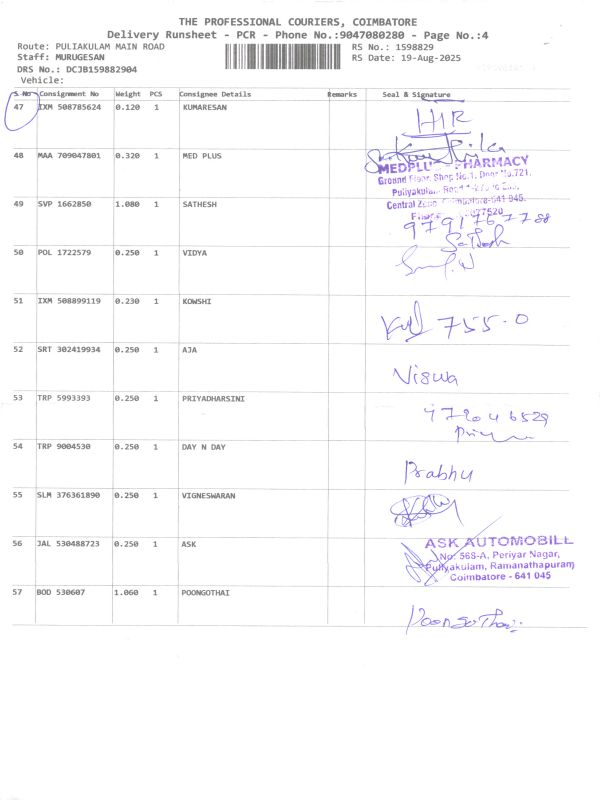 THE PROFESSIONAL COURIERS, COIMBATORE
Delivery Runsheet - PCR - Phone No.:9047080280 - Page No.:4
Route: PULIAKULAM MAIN ROAD RS No.: 1598829
Staff: MURUGESAN RS Date: 19-Aug-2025
DRS No.: DCJB159882904
Vehicle:
S.No Consignment No Weight PCS Consignee Details Remarks Seal & Signature
47 IXM 508785624 0.120 1 KUMARESAN
48 MAA 709047801 0.320 1 MED PLUS
MEDPLUS PHARMACY
Ground Floor, Shop No.1, Door No.721,
Puliyakulam Road
Central Zone, Coimbatore-641 045.
49 SVP 1662850 1.080 1 SATHESH
9791767788
Sathesh
50 POL 1722579 0.250 1 VIDYA
51 IXM 508899119 0.230 1 KOWSHI
755-0
52 SRT 302419934 0.250 1 AJA
Viswa
53 TRP 5993393 0.250 1 PRIYADHARSINI
54 TRP 9004530 0.250 1 DAY N DAY
Prabhu
55 SLM 376361890 0.250 1 VIGNESWARAN
56 JAL 530488723 0.250 1 ASK
ASK AUTOMOBILL
No: 568-A, Periyar Nagar,
Puliyakulam, Ramanathapuram
Coimbatore - 641 045
57 BOD 530607 1.060 1 POONGOTHAI